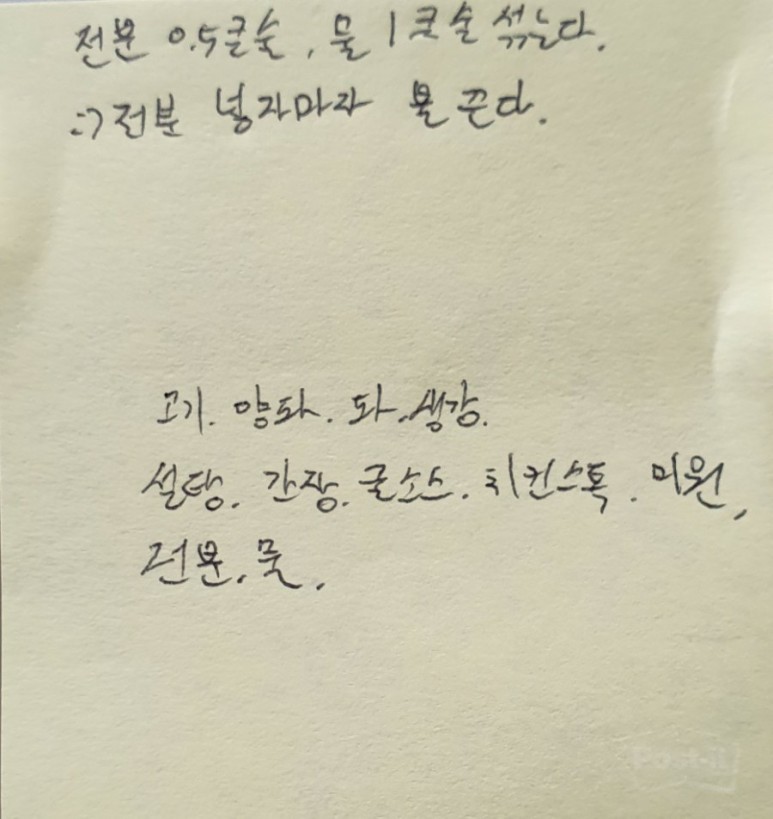 전분 0.5큰술, 물 1큰술 섞는다.
=> 전분 넣자마자 불 끈다.
고기. 양파. 파. 생강.
설탕. 간장. 굴소스. 치킨스톡. 미원,
전분. 물.
Post-it